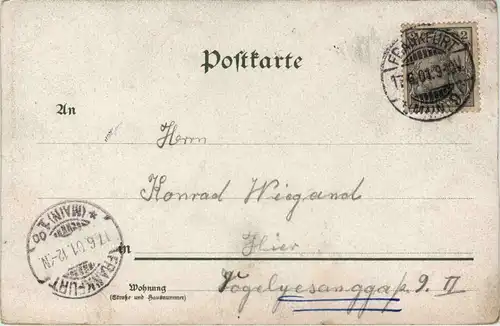 Postkarte
FRANKFURT
17.6.01.
(MAIN)
An
Herrn
Konrad Wiegand
in Hier
Wohnung
(Straße und Hausnummer)
Vogelgesanggaß 9. II
FRANKFURT
17.6.01.12-N
* (MAIN) 1